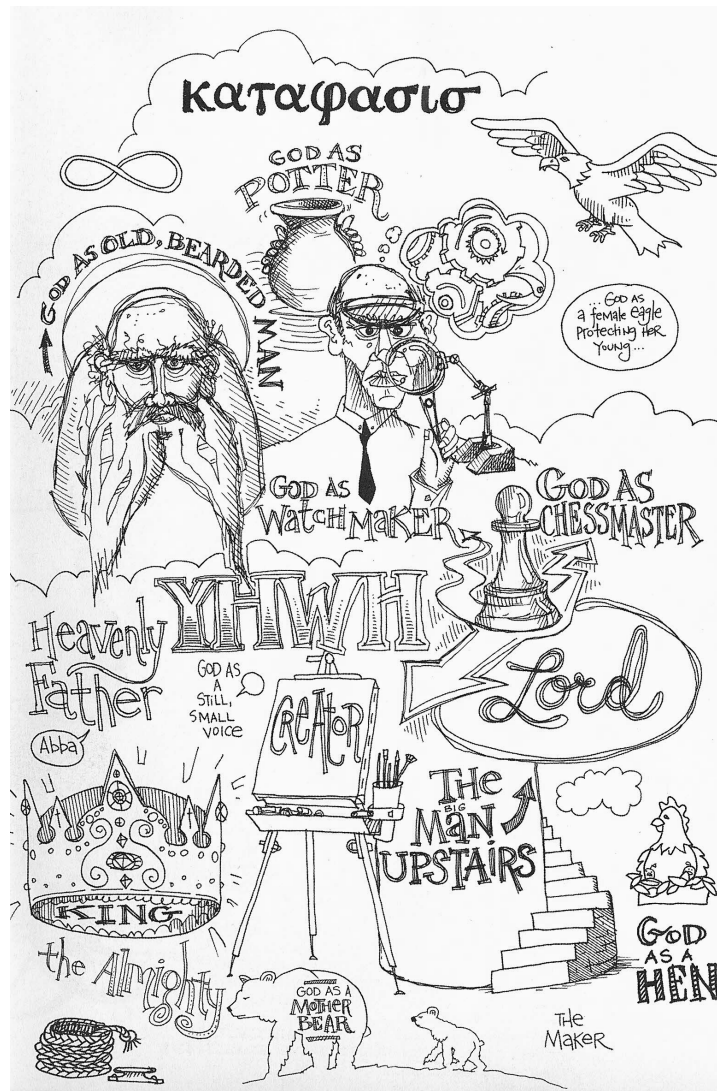 καταφασισ
GOD AS
POTTER
GOD AS OLD, BEARDED MAN
...GOD AS
a female eagle
Protecting Her
Young...
GOD AS
WATCHMAKER
GOD AS
CHESSMASTER
YHWH
Heavenly
Father
Abba
GOD AS
A
STILL,
SMALL
VOICE
CREATOR
Lord
THE
BIG
MAN
UPSTAIRS
KING
the Almighty
GOD AS A
MOTHER
BEAR
GOD
AS A
HEN
THE
MAKER